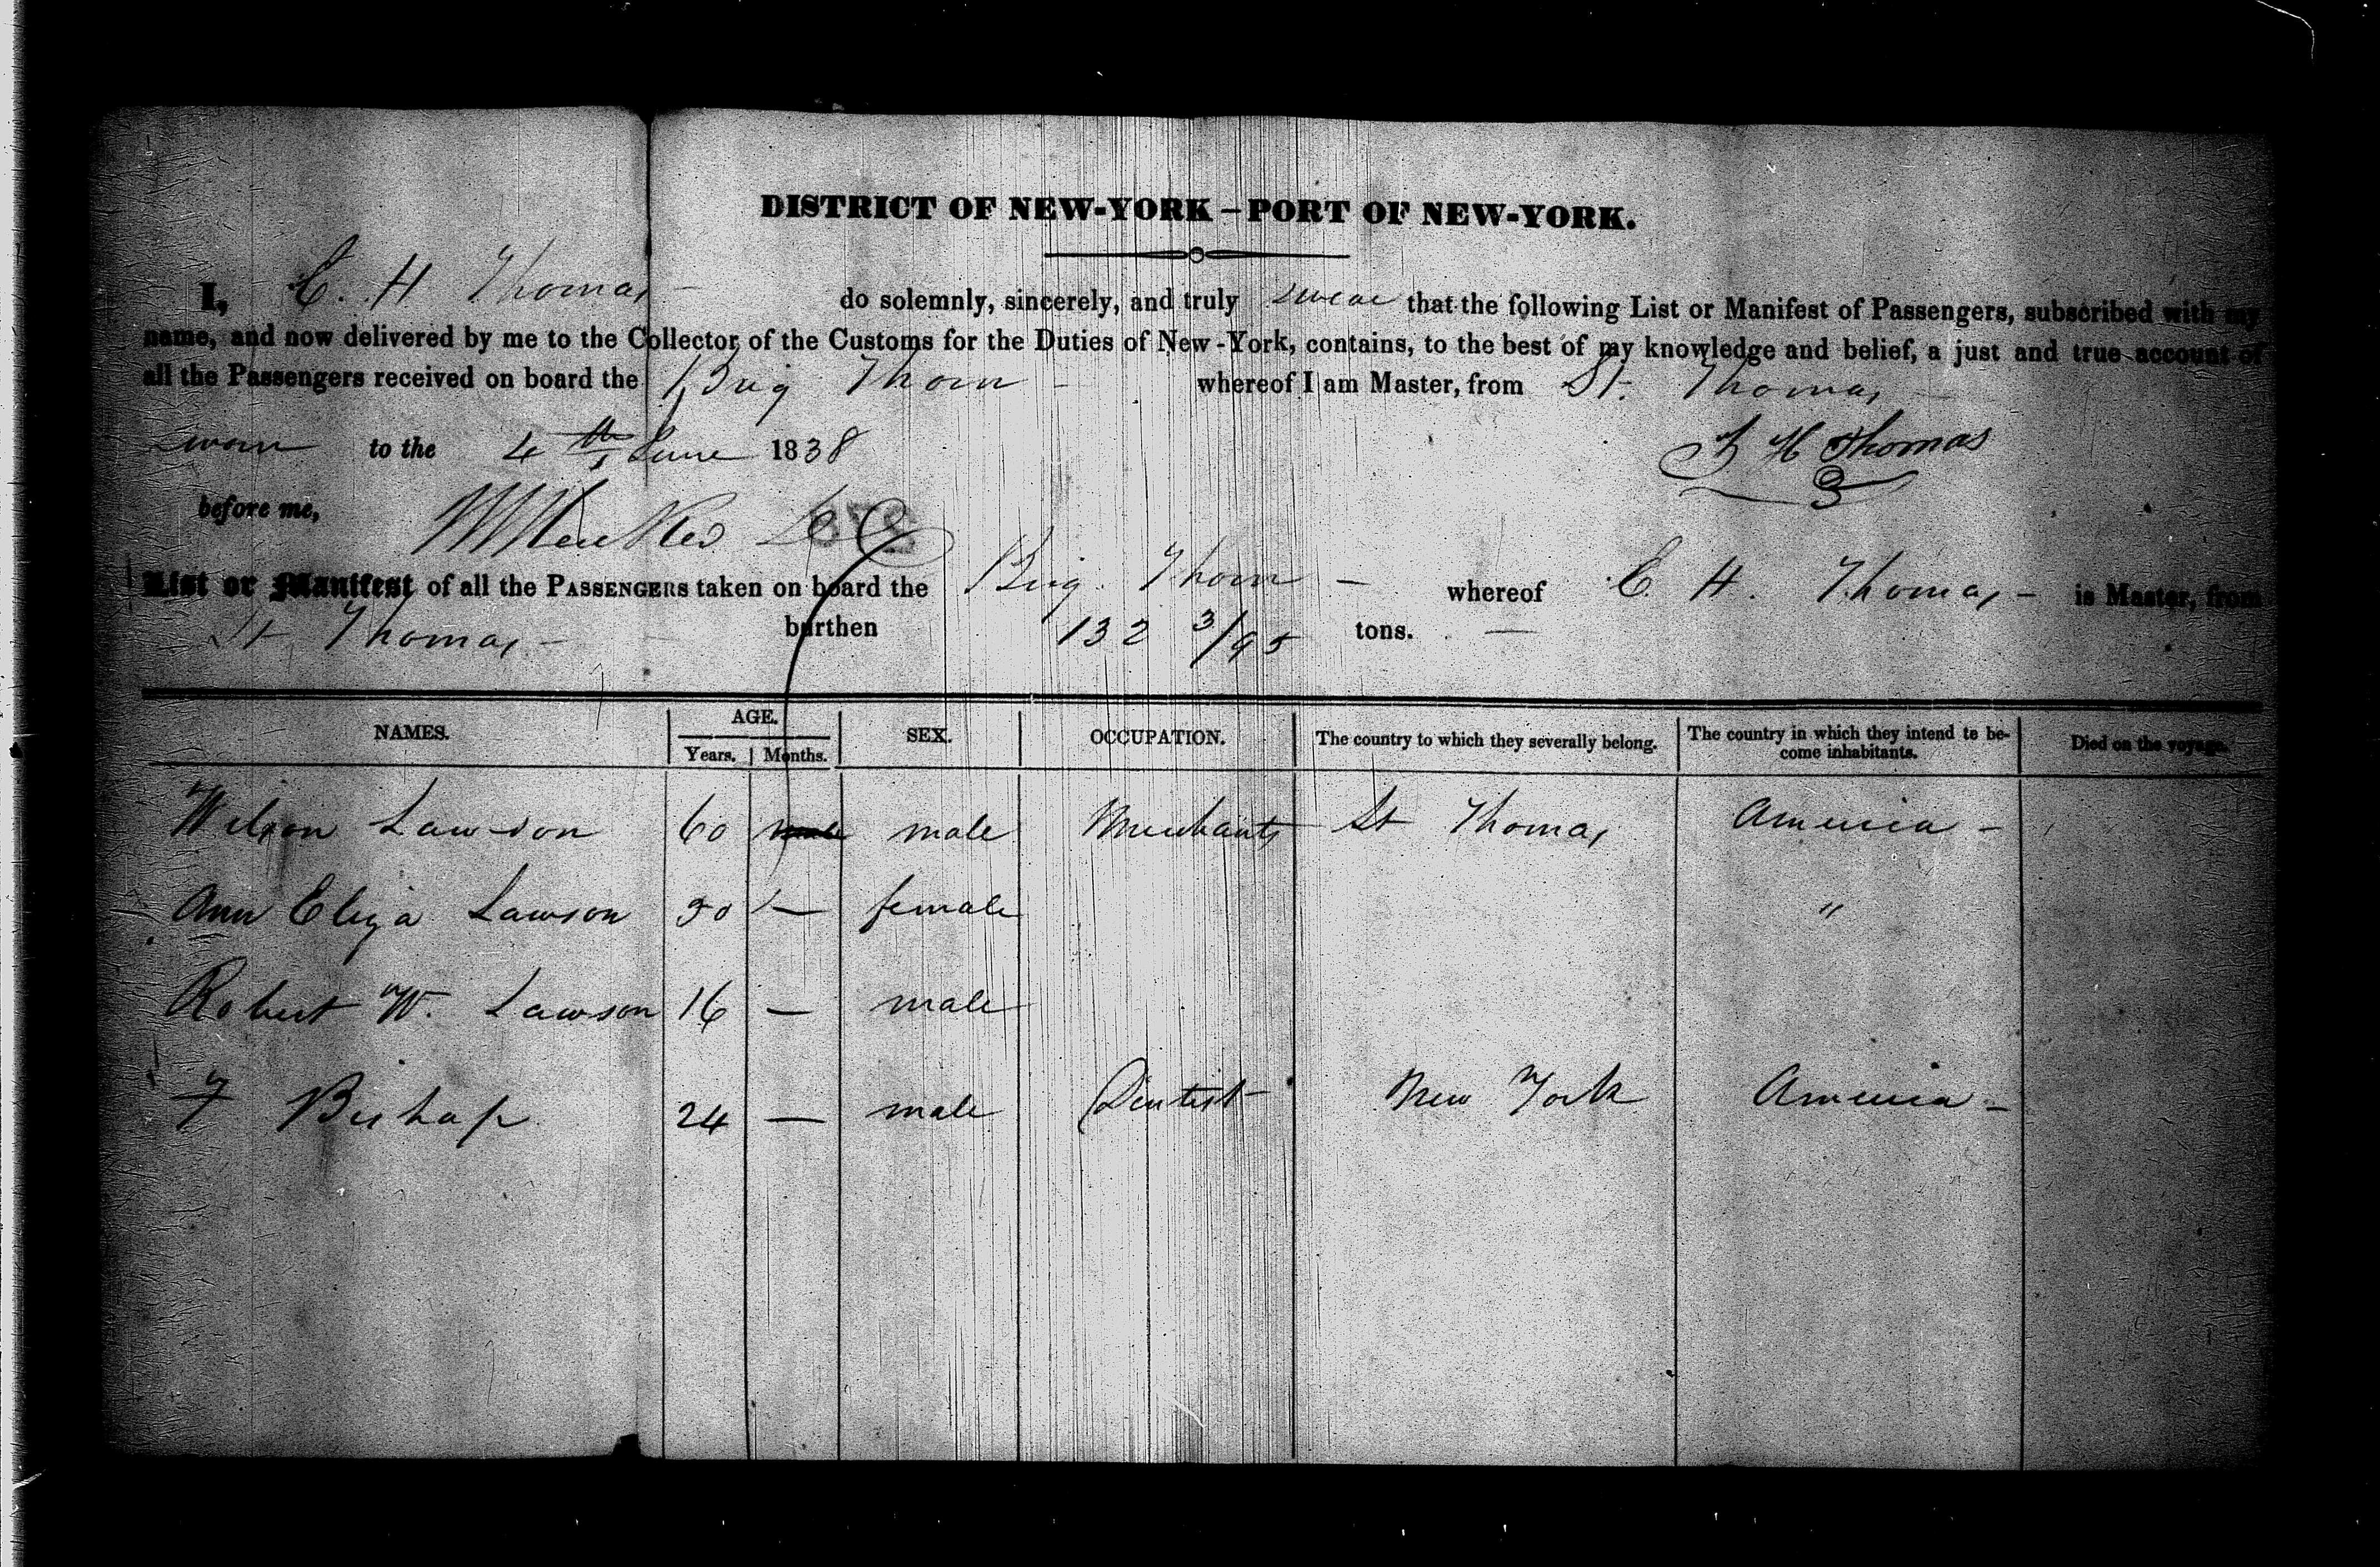 DISTRICT OF NEW-YORK – PORT OF NEW-YORK.
I, C. H Thomas do solemnly, sincerely, and truly swear that the following List or Manifest of Passengers, subscribed with my
name, and now delivered by me to the Collector of the Customs for the Duties of New-York, contains, to the best of my knowledge and belief, a just and true account of
all the Passengers received on board the Brig Thorn whereof I am Master, from St. Thomas
Sworn to the 4th June 1838
H Thomas
before me,
List or Manifest of all the PASSENGERS taken on board the Brig Thorn – whereof C H. Thomas – is Master, from
St Thomas – burthen 132 3/95 tons.
NAMES. AGE. SEX. OCCUPATION. The country to which they severally belong. The country in which they intend to be- Died on the voyage.
Years. Months. come inhabitants.
Wilson Lawson 60 male male Merchants St Thomas America –
Ann Eliza Lawson 50 — female "
Robert W. Lawson 16 — male
F Bishop 24 — male Dentist New York America –